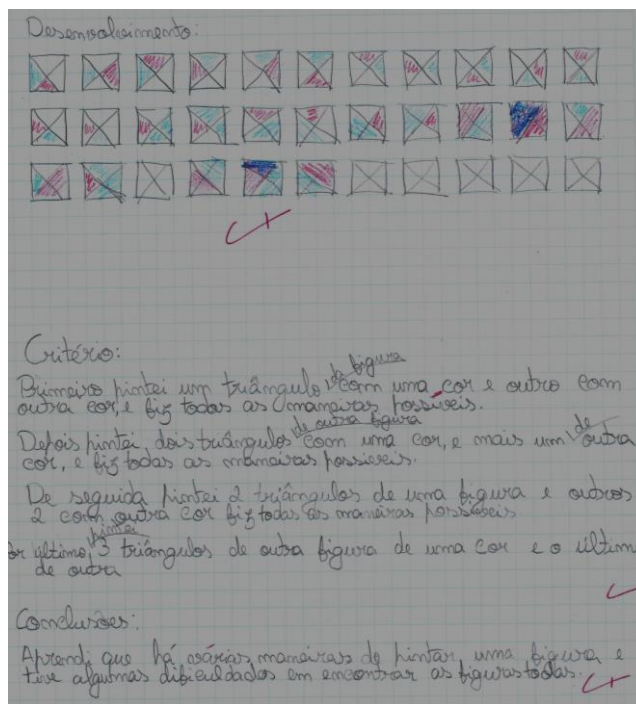 Desenvolvimento:
Critério:
de figura
Primeiro pintei um triângulo com uma cor e outro com
outra cor, e fiz todas as maneiras possíveis.
de outra figura
Depois pintei dois triângulos com uma cor, e mais um de outra
cor, e fiz todas as maneiras possieveis.
De seguida pintei 2 triângulos de uma figura e outros
2 com outra cor fiz todas as maneiras possíbeis
pintei
or último, 3 triângulos de outra figura de uma cor e o últim
de outra
Conclusões:
Aprendi que há várias maneiras de pintar uma figura e
tive algumas dificuldades em encontrar as figuras todas.